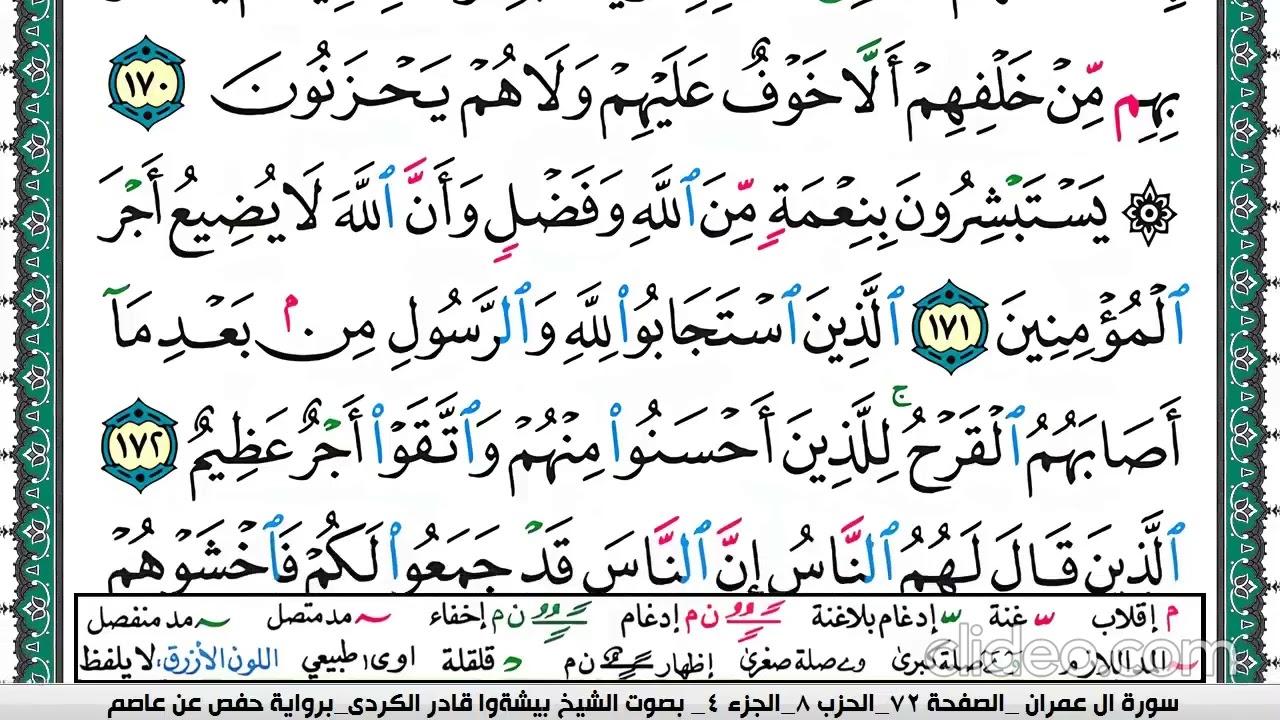 بِهِم مِّنْ خَلْفِهِمْ أَلَّا خَوْفٌ عَلَيْهِمْ وَلَا هُمْ يَحْزَنُونَ ١٧٠
۞ يَسْتَبْشِرُونَ بِنِعْمَةٍ مِّنَ ٱللَّهِ وَفَضْلٍ وَأَنَّ ٱللَّهَ لَا يُضِيعُ أَجْرَ
ٱلْمُؤْمِنِينَ ١٧١ ٱلَّذِينَ ٱسْتَجَابُوا۟ لِلَّهِ وَٱلرَّسُولِ مِنۢ بَعْدِ مَآ
أَصَابَهُمُ ٱلْقَرْحُ ۚ لِلَّذِينَ أَحْسَنُوا۟ مِنْهُمْ وَٱتَّقَوْا۟ أَجْرٌ عَظِيمٌ ١٧٢
ٱلَّذِينَ قَالَ لَهُمُ ٱلنَّاسُ إِنَّ ٱلنَّاسَ قَدْ جَمَعُوا۟ لَكُمْ فَٱخْشَوْهُمْ
م إقلاب غنة إدغام بلاغنة ن م إدغام ن م إخفاء مد متصل مد منفصل
المد اللازم و ے صلة كبرى و ے صلة صغرى إظهار ن م قلقلة اوى طبيعي اللون الأزرق، لا يلفظ
clideo.com
سورة ال عمران _الصفحة ٧٢_الحزب ٨_الجزء ٤_ بصوت الشيخ بيشةوا قادر الكردى_برواية حفص عن عاصم